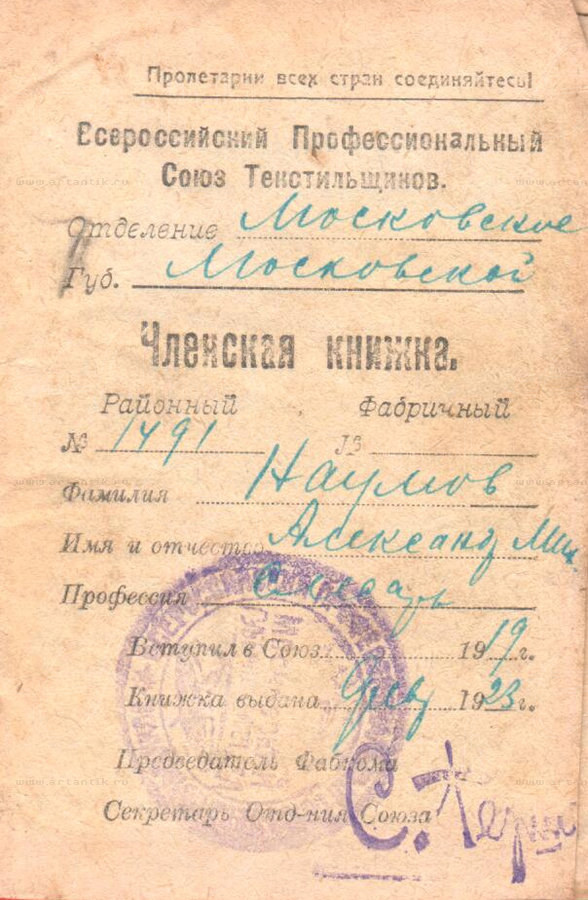 Пролетарии всех стран соединяйтесь!
Всероссийский Профессиональный
Союз Текстильщиков.
Отделение Московское
Губ. Московской
Членская книжка.
Районный Фабричный
№ 1491 №
Фамилия Наумов
Имя и отчество Александ Мих
Профессия Слесарь
Вступил в Союз 1919 г.
Книжка выдана 1923 г.
Председатель Фабкома
Секретарь Отд-ния Союза
www.artantik.ru